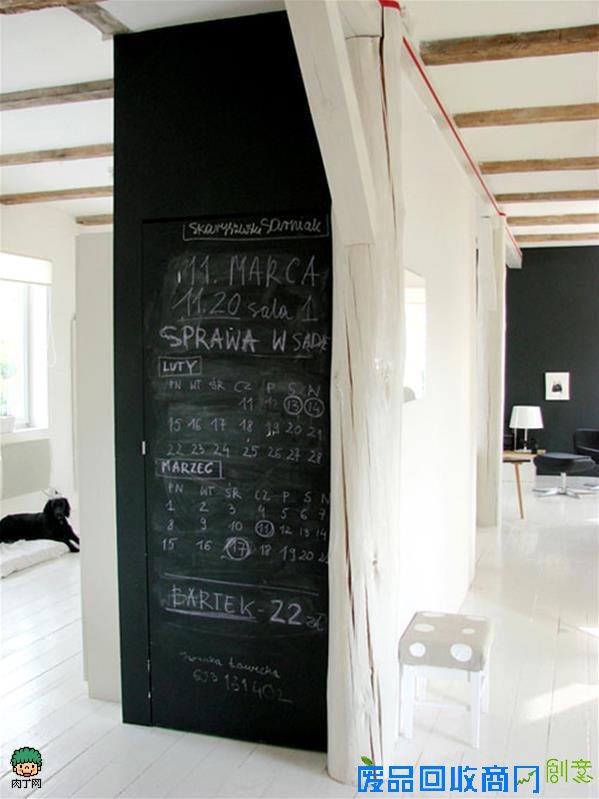 11. MARCA
11.20 sala 1
SPRAWA W SĄDZIE
LUTY
PN WT ŚR CZ P S N
11 12 13 14
15 16 17 18 19 20 21
22 23 24 25 26 27 28
MARZEC
PN WT ŚR CZ P S N
1 2 3 4 5 6 7
8 9 10 11 12 13 14
15 16 17 18 19 20
BARTEK - 22 zł
693 151 402
肉丁网
废品回收商网
创意